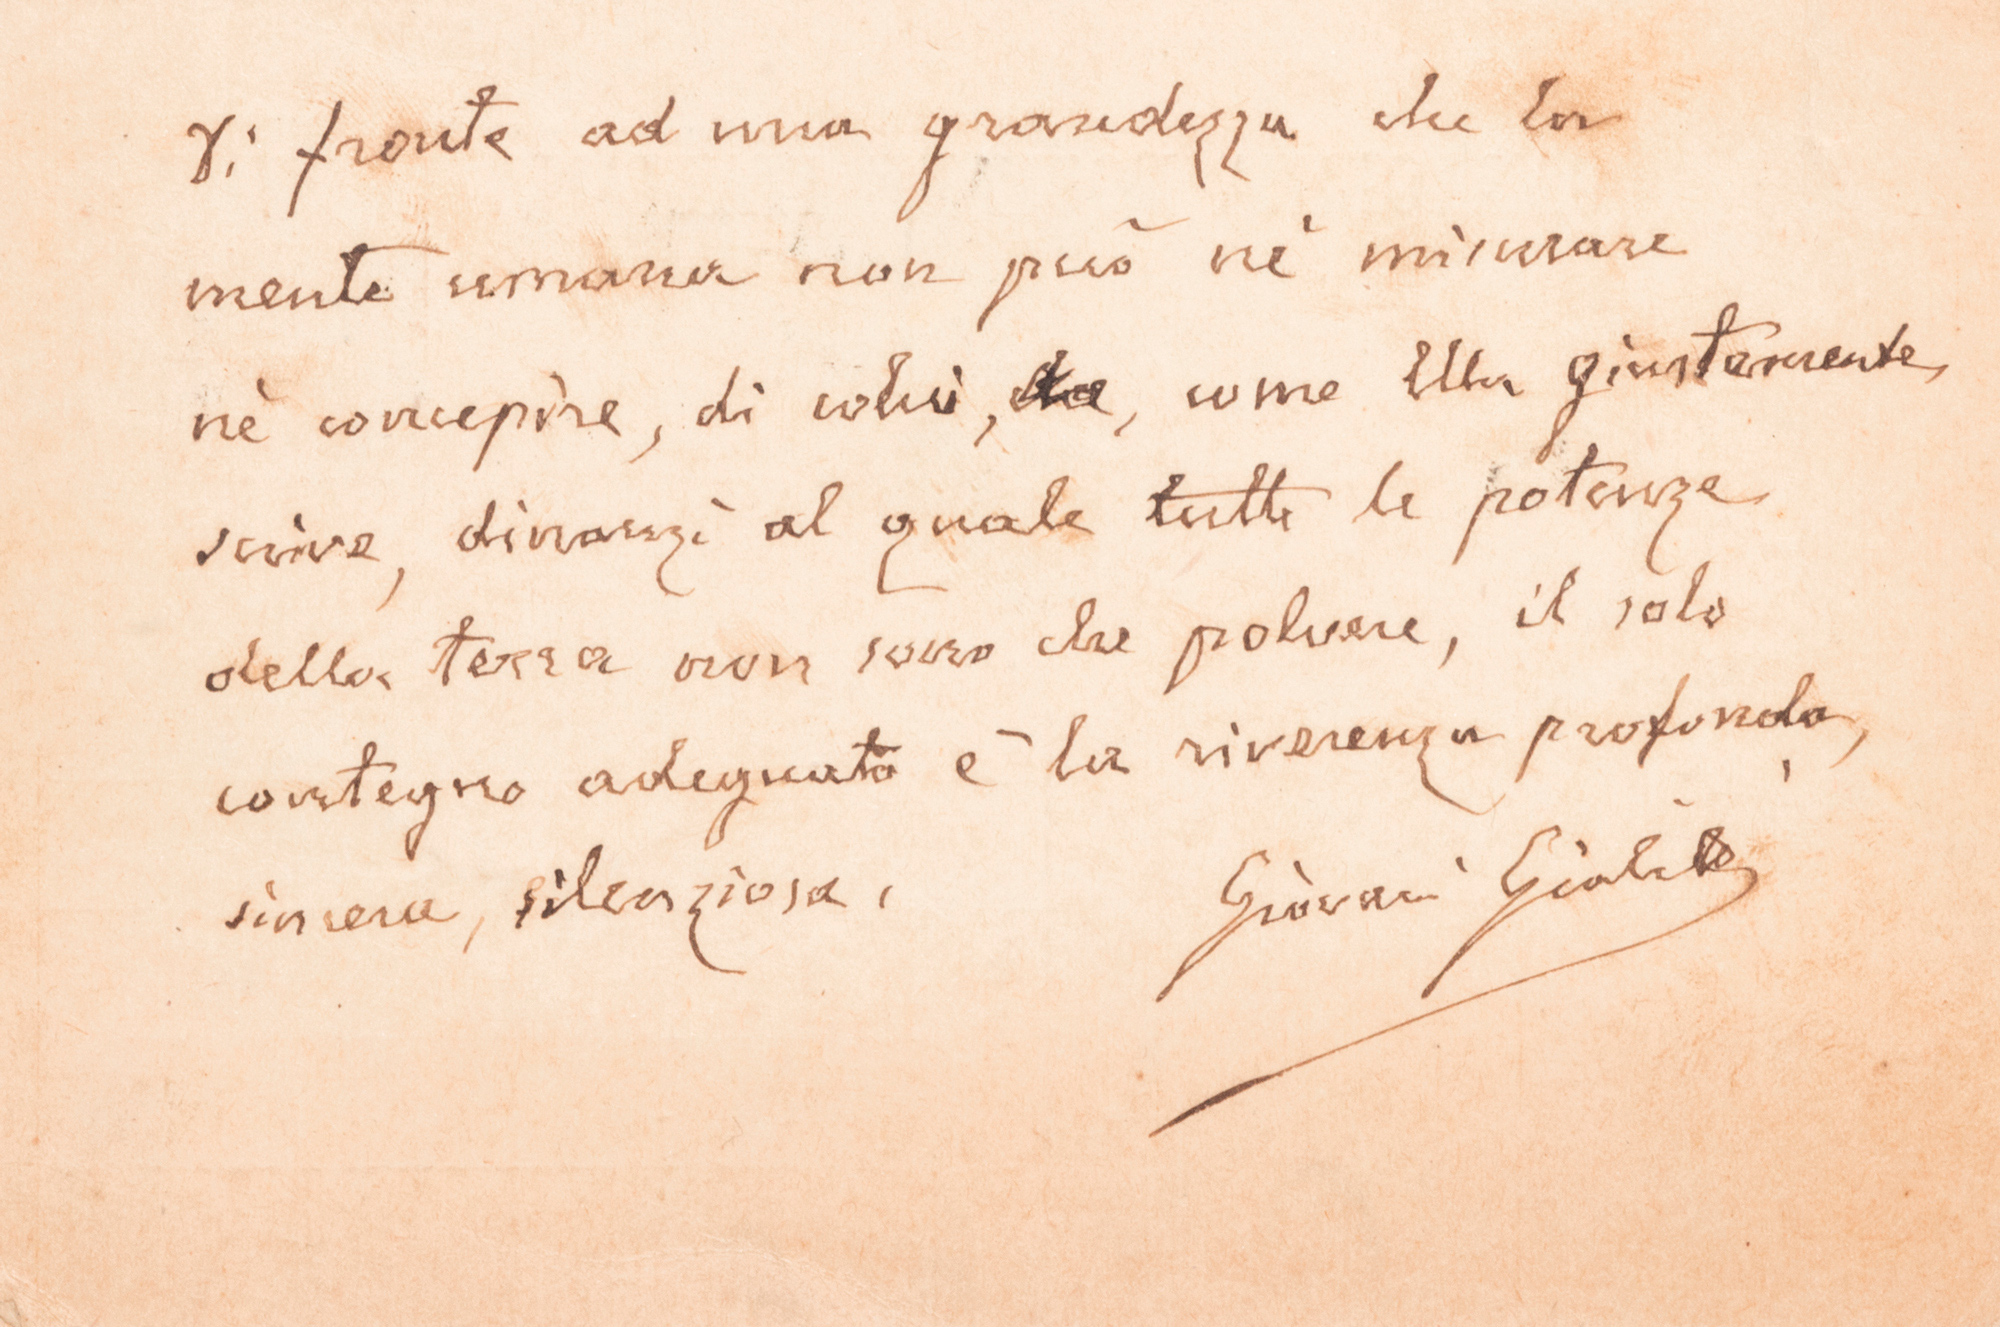 Di fronte ad una grandezza che la
mente umana non può nè misurare
nè concepire, di colui, che, come Ella giustamente
scrive, dinanzi al quale tutte le potenze
della terra non sono che polvere, il solo
contegno adeguato è la riverenza profonda,
sincera, silenziosa.
Giovani